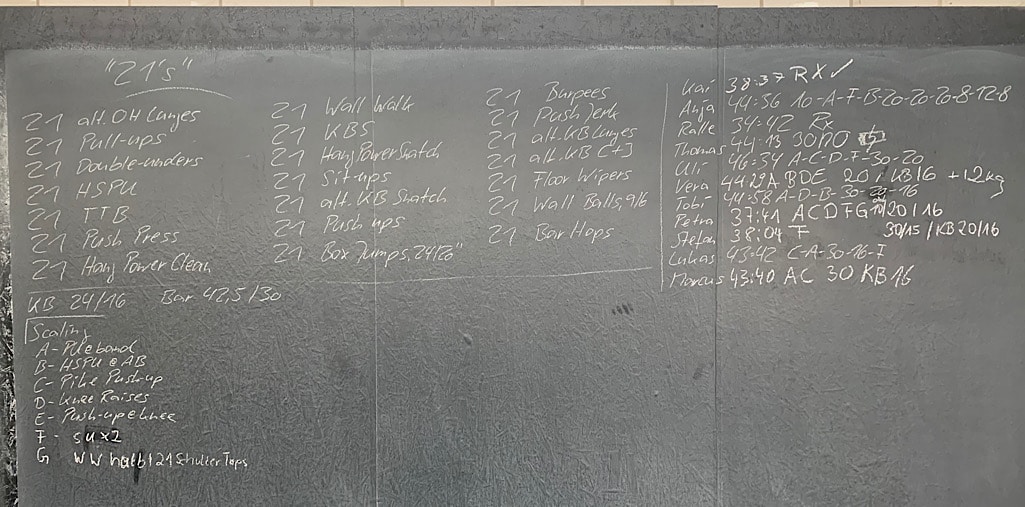 "21's"
21 alt. OH Lunges
21 Pull-ups
21 Double-unders
21 HSPU
21 TTB
21 Push Press
21 Hang Power Clean
21 Wall Walk
21 KBS
21 Hang Power Snatch
21 Sit-ups
21 alt. KB Snatch
21 Push ups
21 Box Jumps, 24/20"
21 Burpees
21 Push Jerk
21 alt. KB Lunges
21 alt. KB C+J
21 Floor Wipers
21 Wall Balls, 9/6
21 Bar Hops
Kai 38:37 RX ✓
Anja 44:56 10-A-F-B-20-20-20-8-12-8
Ralle 34:42 Rx
Thomas 44:13 30/10
Uli 46:34 A-C-D-F-30-20
Vera 44:29 A BDE 20 KB16 +12kg
Tobi 44:58 A-D-B-30-20-16
Petra 37:41 ACDFG 20/16
Stefan 38:04 F 30/15 / KB 20/16
Lukas 43:42 C-A-30-16-F
Marcus 43:40 AC 30 KB 16
KB 24/16 Bar 42,5/30
Scaling
A - band
B - HSPU @ AB
C - Pike Push-up
D - Knee Raises
E - Push-up @ knee
F - SU x2
G WW halb / 21 Schulter Taps